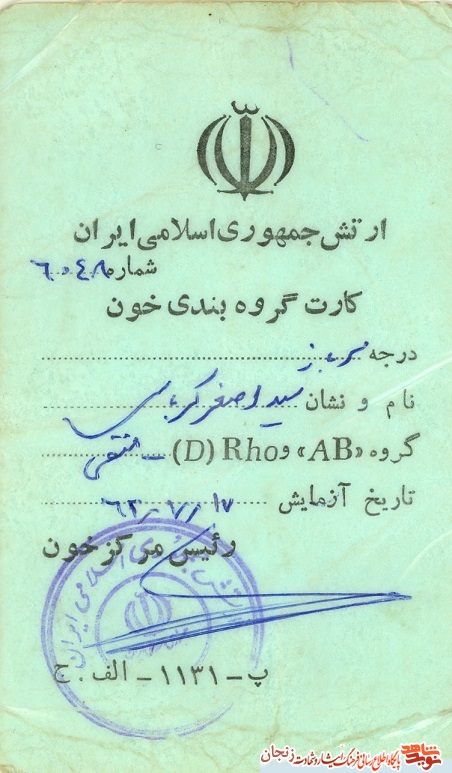 ارتش جمهوری اسلامی ایران
شماره ۶۰۴۸
کارت گروه بندی خون
درجه سرباز
نام و نشان سید اصغر
گروه «AB» و Rho (D) – منفی
تاریخ آزمایش ۱۷ / ۷ / ۶۲
رئیس مرکز خون
پ - ۱۱۳۱ - الف . ج
نوید شاهد پایگاه اطلاع رسانی فرهنگ ایثار و شهادت زنجان